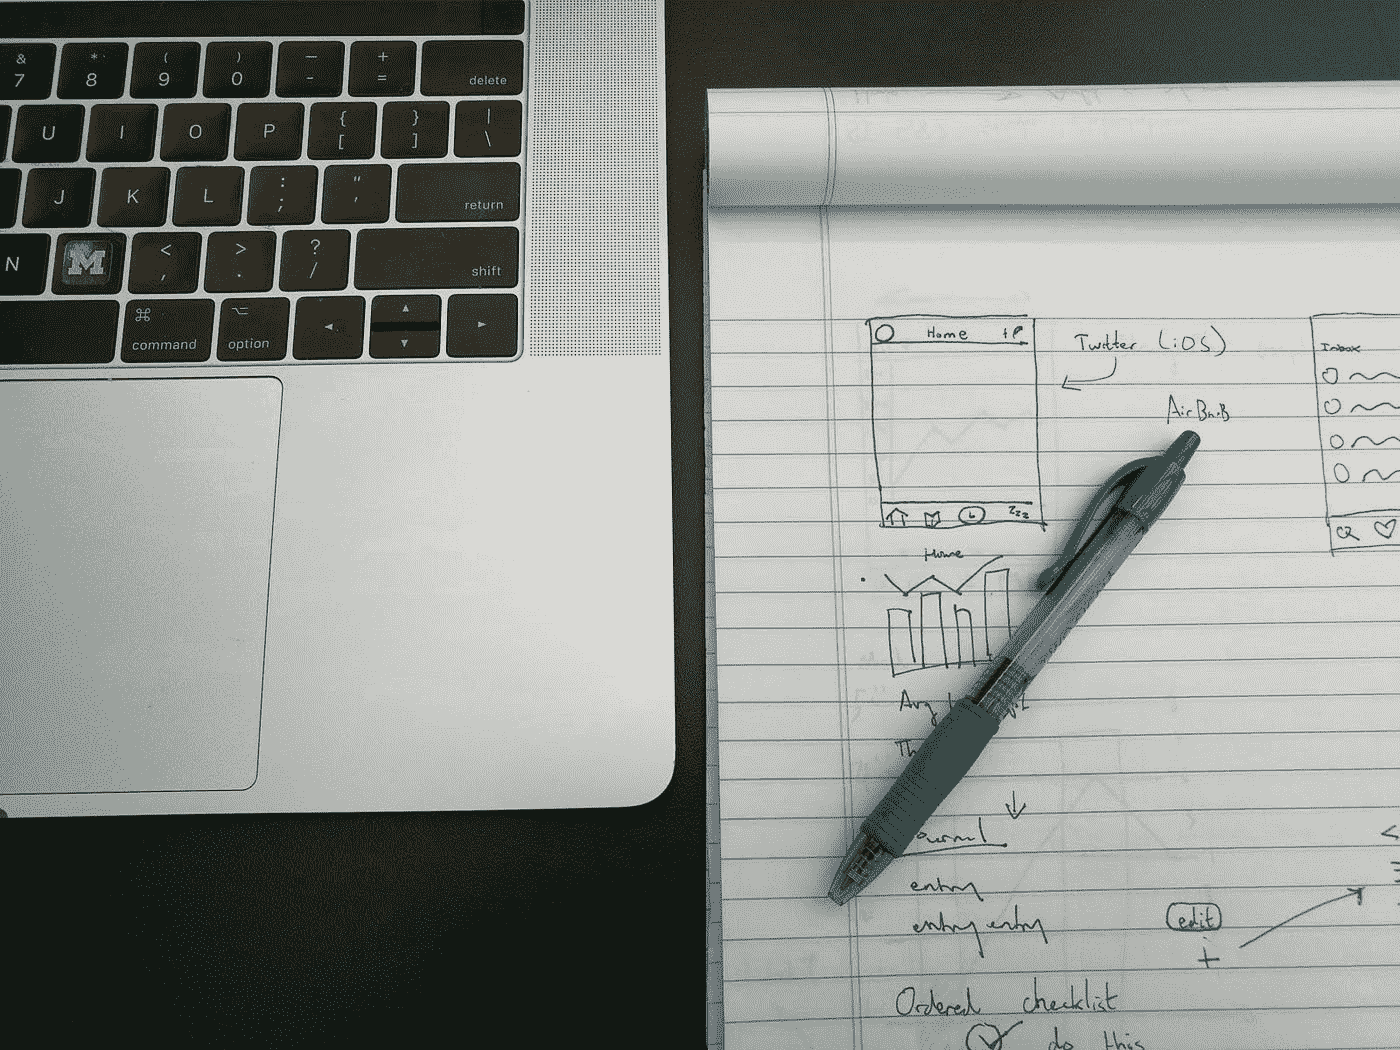 & 7 * 8 ( 9 ) 0 — - + = delete
U I O P { [ } ] | \
J K L : ; " ' return
N M < , > . ? / shift
⌘ command ⌥ option ◄ ▲ ▼ ►
Home
Twitter (iOS)
AirBnB
Inbox
zzz
Home
Avg
entry
entry entry
edit
+
Ordered checklist
do this